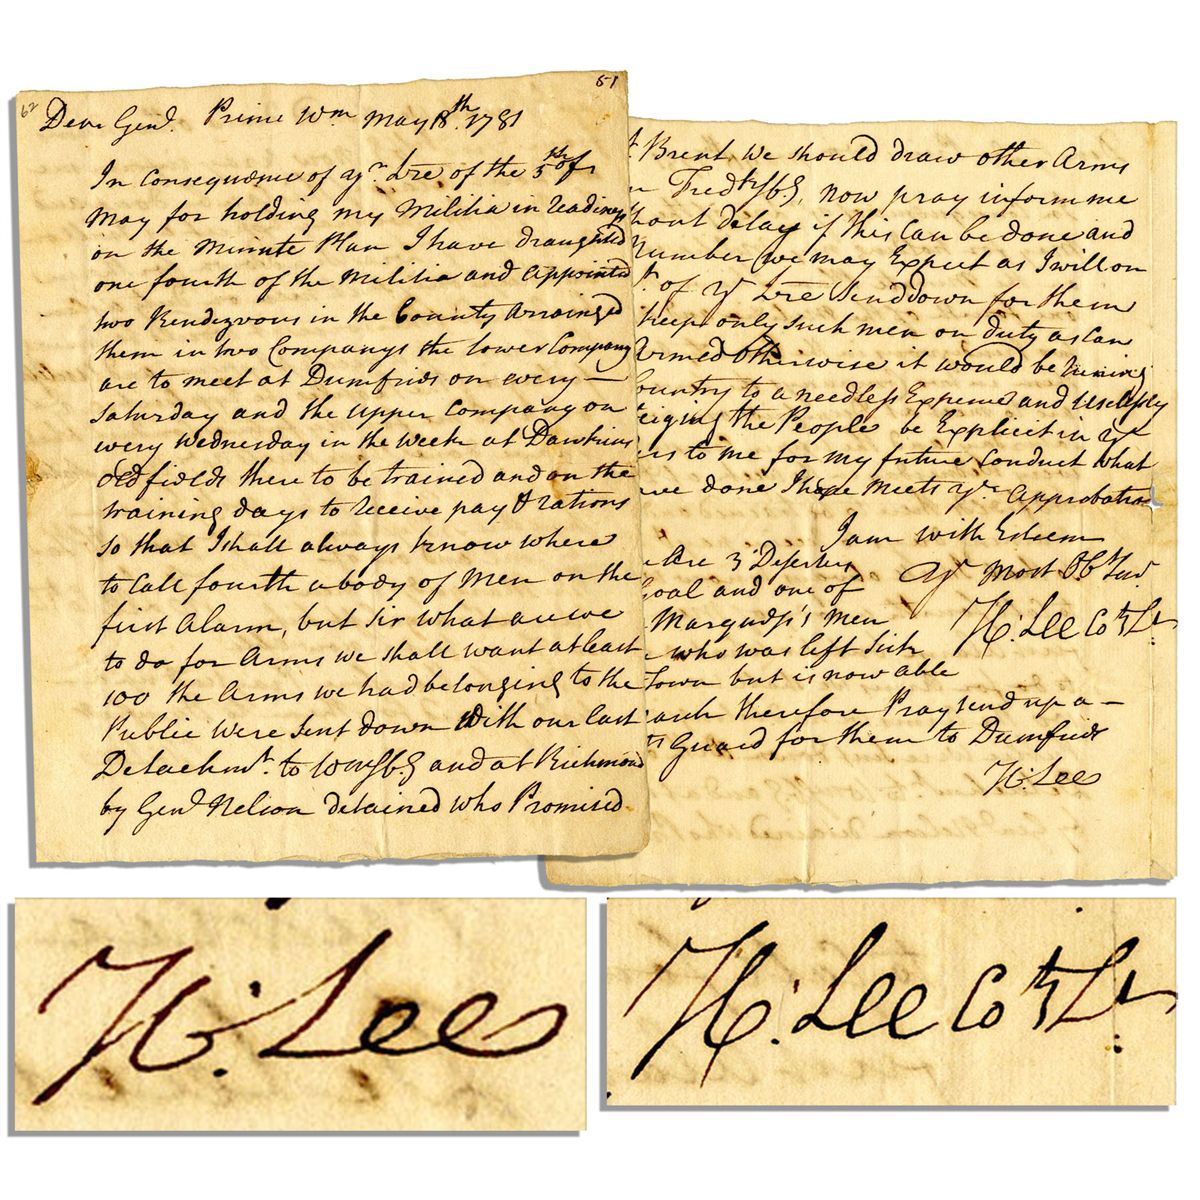 62
51
Dear Genl. Prince Wm May 18th. 1781
In Consequence of yr. Lre of the 5th of
May for holding my Militia in readiness
on the Minute Plan I have draughted
one fourth of the Militia and appointed
two Rendezvous in the County arrainged
them in two Companys the lower Company
are to meet at Dumfries on every —
Saturday and the upper Company on
every Wednesday in the Week at Dawkins
old fields there to be trained and on the
training days to receive pay & rations
so that I shall always know where
to Call fourth a body of Men on the
first Alarm, but Sir what are we
to do for Arms we shall want at least
100 the Arms we had belonging to the
Public were sent down with our last
Detachmt. to WmsbG and at Richmond
by Genl Nelson detained who Promised
Brent we should draw other Arms
FredksbG, now pray inform me
hout delay if this Can be done and
Number we may Expect as I will on
of yr Lre Send down for them
keep only such men on duty as can
Armed otherwise it would be runing
Country to a needless Expence and uselesly
the People be Explicit in yr
ers to me for my future Conduct what
ve done I hope Meets yr. Approbation
I am with Esteem
yr Most Obt Serv
H. Lee Co Lt
are 3 Deserters
Goal and one of
Men
who was left Sick
Town but is now able
therefore Pray send up a —
Guard for them to Dumfries
H. Lee
H. Lee
H. Lee Co Lt